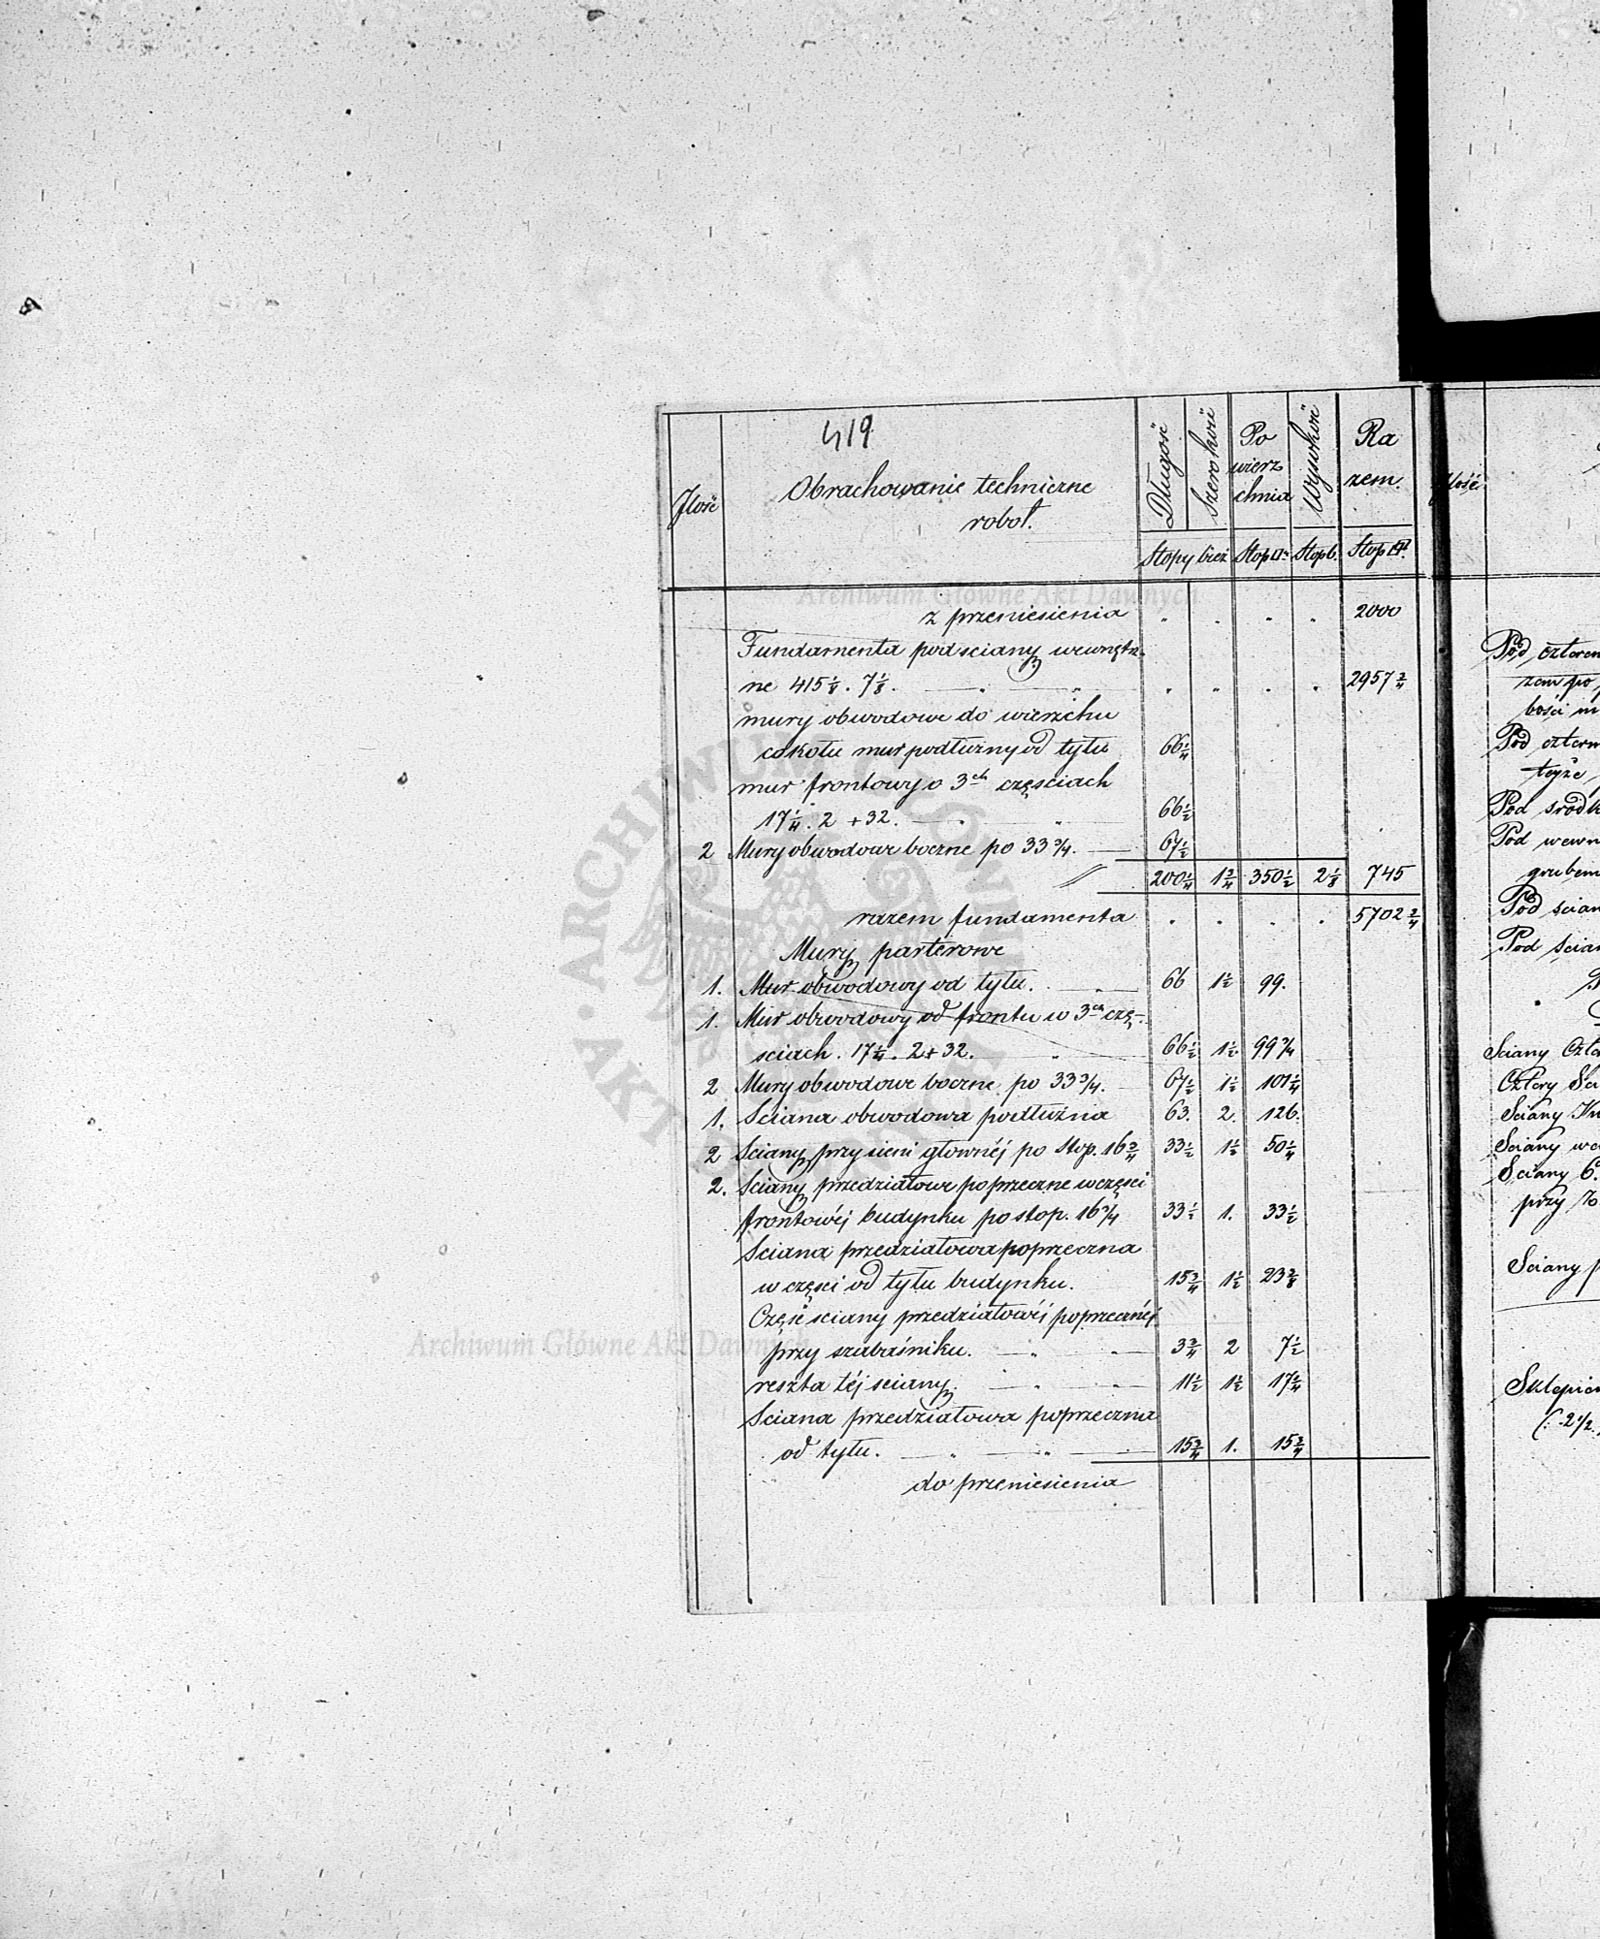 419
Ilość
Obrachowanie techniczne
robot.
Długość
Szerokość
Po
wierz
chnia
Wysokość
Ra
zem.
Stopy bież
Stop □
Stop b.
Stop
z przeniesienia . . . . 2000
Fundamenta pod sciany wewnętrz-
ne 415 1/8 . 7 1/8 . . . . . 2957 3/4
mury obwodowe do wierzchu
cokołu mur podłużny od tyłu 66 1/4
mur frontowy o 3ch częsciach
17 1/4 . 2 + 32. 66 1/2
2 Mury obwodowe boczne po 33 3/4. 67 1/2
200 1/4 1 3/4 350 1/2 2 1/8 745
razem fundamenta . . . . 5702 3/4
Mury parterowe
1. Mur obwodowy od tyłu. 66 1 1/2 99.
1. Mur obwodowy od frontu w 3ch czę-
sciach . 17 1/4 . 2 + 32. 66 1/2 1 1/2 99 3/4
2 Mury obwodowe boczne po 33 3/4. 67 1/2 1 1/2 101 1/4
1. Sciana obwodowa podłużna 63. 2. 126.
2 Sciany przy sieni głownéj po stop. 16 3/4 33 1/2 1 1/2 50 1/4
2. Sciany przedziałowe poprzeczne w części
frontowéj budynku po stop. 16 3/4 33 1/2 1. 33 1/2
Sciana przedziałowa poprzeczna
w części od tyłu budynku. 15 3/4 1 1/2 23 3/8
Część sciany przedziałowéj poprzecznéj
przy szabaśniku. 3 3/4 2 7 1/2
reszta téj sciany. 11 1/2 1 1/2 17 1/4
Sciana przedziałowa poprzeczna
od tyłu. 15 3/4 1. 15 3/4
do przeniesienia
Ilość
Pod
zem po
bości m
Pod
tejże,
Pod srodk
Pod wewn
grubem
Pod scian
Pod scian
Sciany
Cztery Sci
Sciany
Sciany we
Sciany 6.
przy
Sciany p
Sklepien
2 1/2
Archiwum Główne Akt Dawnych
Archiwum Główne Akt Dawnych